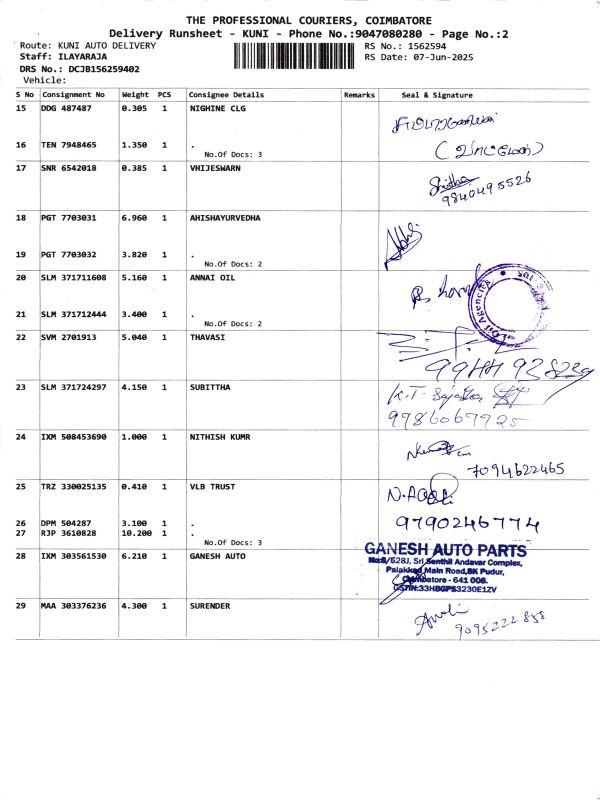 THE PROFESSIONAL COURIERS, COIMBATORE
Delivery Runsheet - KUNI - Phone No.:9047080280 - Page No.:2
Route: KUNI AUTO DELIVERY
RS No.: 1562594
Staff: ILAYARAJA
RS Date: 07-Jun-2025
DRS No.: DCJB156259402
Vehicle:
S No Consignment No Weight PCS Consignee Details Remarks Seal & Signature
15 DDG 487487 0.305 1 NIGHINE CLG
16 TEN 7948465 1.350 1 .
No.Of Docs: 3
17 SNR 6542018 0.385 1 VHIJESWARN
9840495526
18 PGT 7703031 6.960 1 AHISHAYURVEDHA
19 PGT 7703032 3.820 1 .
No.Of Docs: 2
20 SLM 371711608 5.160 1 ANNAI OIL
Oil Agencies
21 SLM 371712444 3.400 1 .
No.Of Docs: 2
22 SVM 2701913 5.040 1 THAVASI
23 SLM 371724297 4.150 1 SUBITTHA
K.T.
9786067925
24 IXM 508453690 1.000 1 NITHISH KUMR
7094622465
25 TRZ 330025135 0.410 1 VLB TRUST
26 DPM 504287 3.100 1 .
9790246774
27 RJP 3610828 10.200 1 .
No.Of Docs: 3
28 IXM 303561530 6.210 1 GANESH AUTO
GANESH AUTO PARTS
No:8/528J, Sri Senthil Andavar Complex,
Palakkad Main Road, BK Pudur,
Coimbatore - 641 008.
GSTIN:33HBGPS3230E1ZV
29 MAA 303376236 4.300 1 SURENDER
9095222858